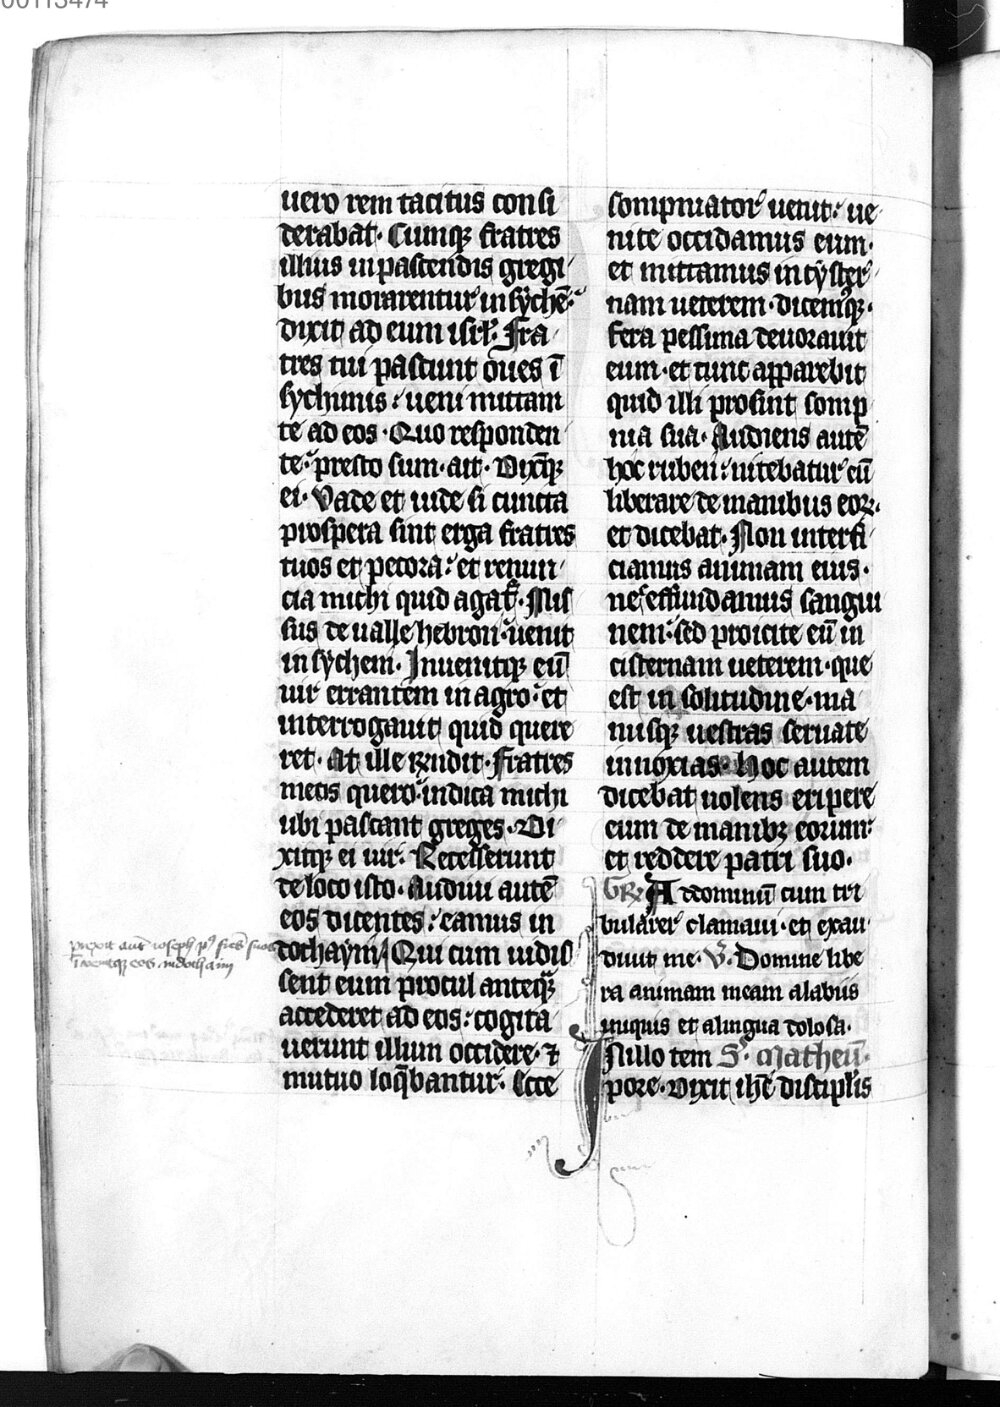 00113474
uero rem tacitus consi
derabat. Cumqꝫ fratres
illius in pascendis gregi
bus morarentur in sychē:
dixit ad eum isrl̄. Fra
tres tui pascunt oues ī
sychimis: ueni mittam
te ad eos. Quo responden
te: presto sum. ait. Dixitqꝫ
ei. Vade et uide si cuncta
prospera sint erga fratres
tuos et pecora: et renun
cia michi quid agat̄. Mis
sus de ualle hebron: uenit
in sychem. Inuenitqꝫ eū
uir errantem in agro: et
interrogauit quid quere
ret. At ille rn̄dit. Fratres
meos quero: indica michi
ubi pascant greges. Di
xitqꝫ ei uir: Recesserunt
de loco isto. Audiui autē
eos dicentes: eamus in
dothaym. Qui cum uidis
sent eum procul anteqꝫ̄
accederet ad eos: cogita
uerunt illum occidere. ⁊
mutuo loqbantur. Ecce
perexit aut̄ ioseph pꝰ fr̄es suos
⁊ īuenitqꝫ eos in dothaim
sompniator uenit: ue
nite occidamus eum.
et mittamus in cyster
nam ueterem. dicemꝰqꝫ.
fera pessima deuorauit
eum. et tunc apparebit
quid illi prosint somp
nia sua. Audiens autē
hoc ruben: nitebatur eū
liberare de manibus eoꝝ.
et dicebat. Non interfi
ciamus animam eius.
nec effundamus sangui
nem: sed proicite eū in
cisternam ueterem. que
est in solitudine. ma
nusqꝫ uestras seruate
innoxias. Hoc autem
dicebat uolens eripere
eum de manibꝫ eorum:
et reddere patri suo.
GR̄. Ad dominū cum tri
bularer clamaui. et exau
diuit me. V̄. Domine libe
ra animam meam alabiis
iniquis et alingua dolosa.
In illo tem S. Matheū.
pore. Dixit ihē discipl̄is